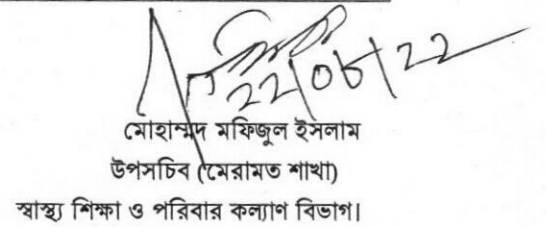 22/06/22
মোহাম্মদ মফিজুল ইসলাম
উপসচিব (মেরামত শাখা)
স্বাস্থ্য শিক্ষা ও পরিবার কল্যাণ বিভাগ।